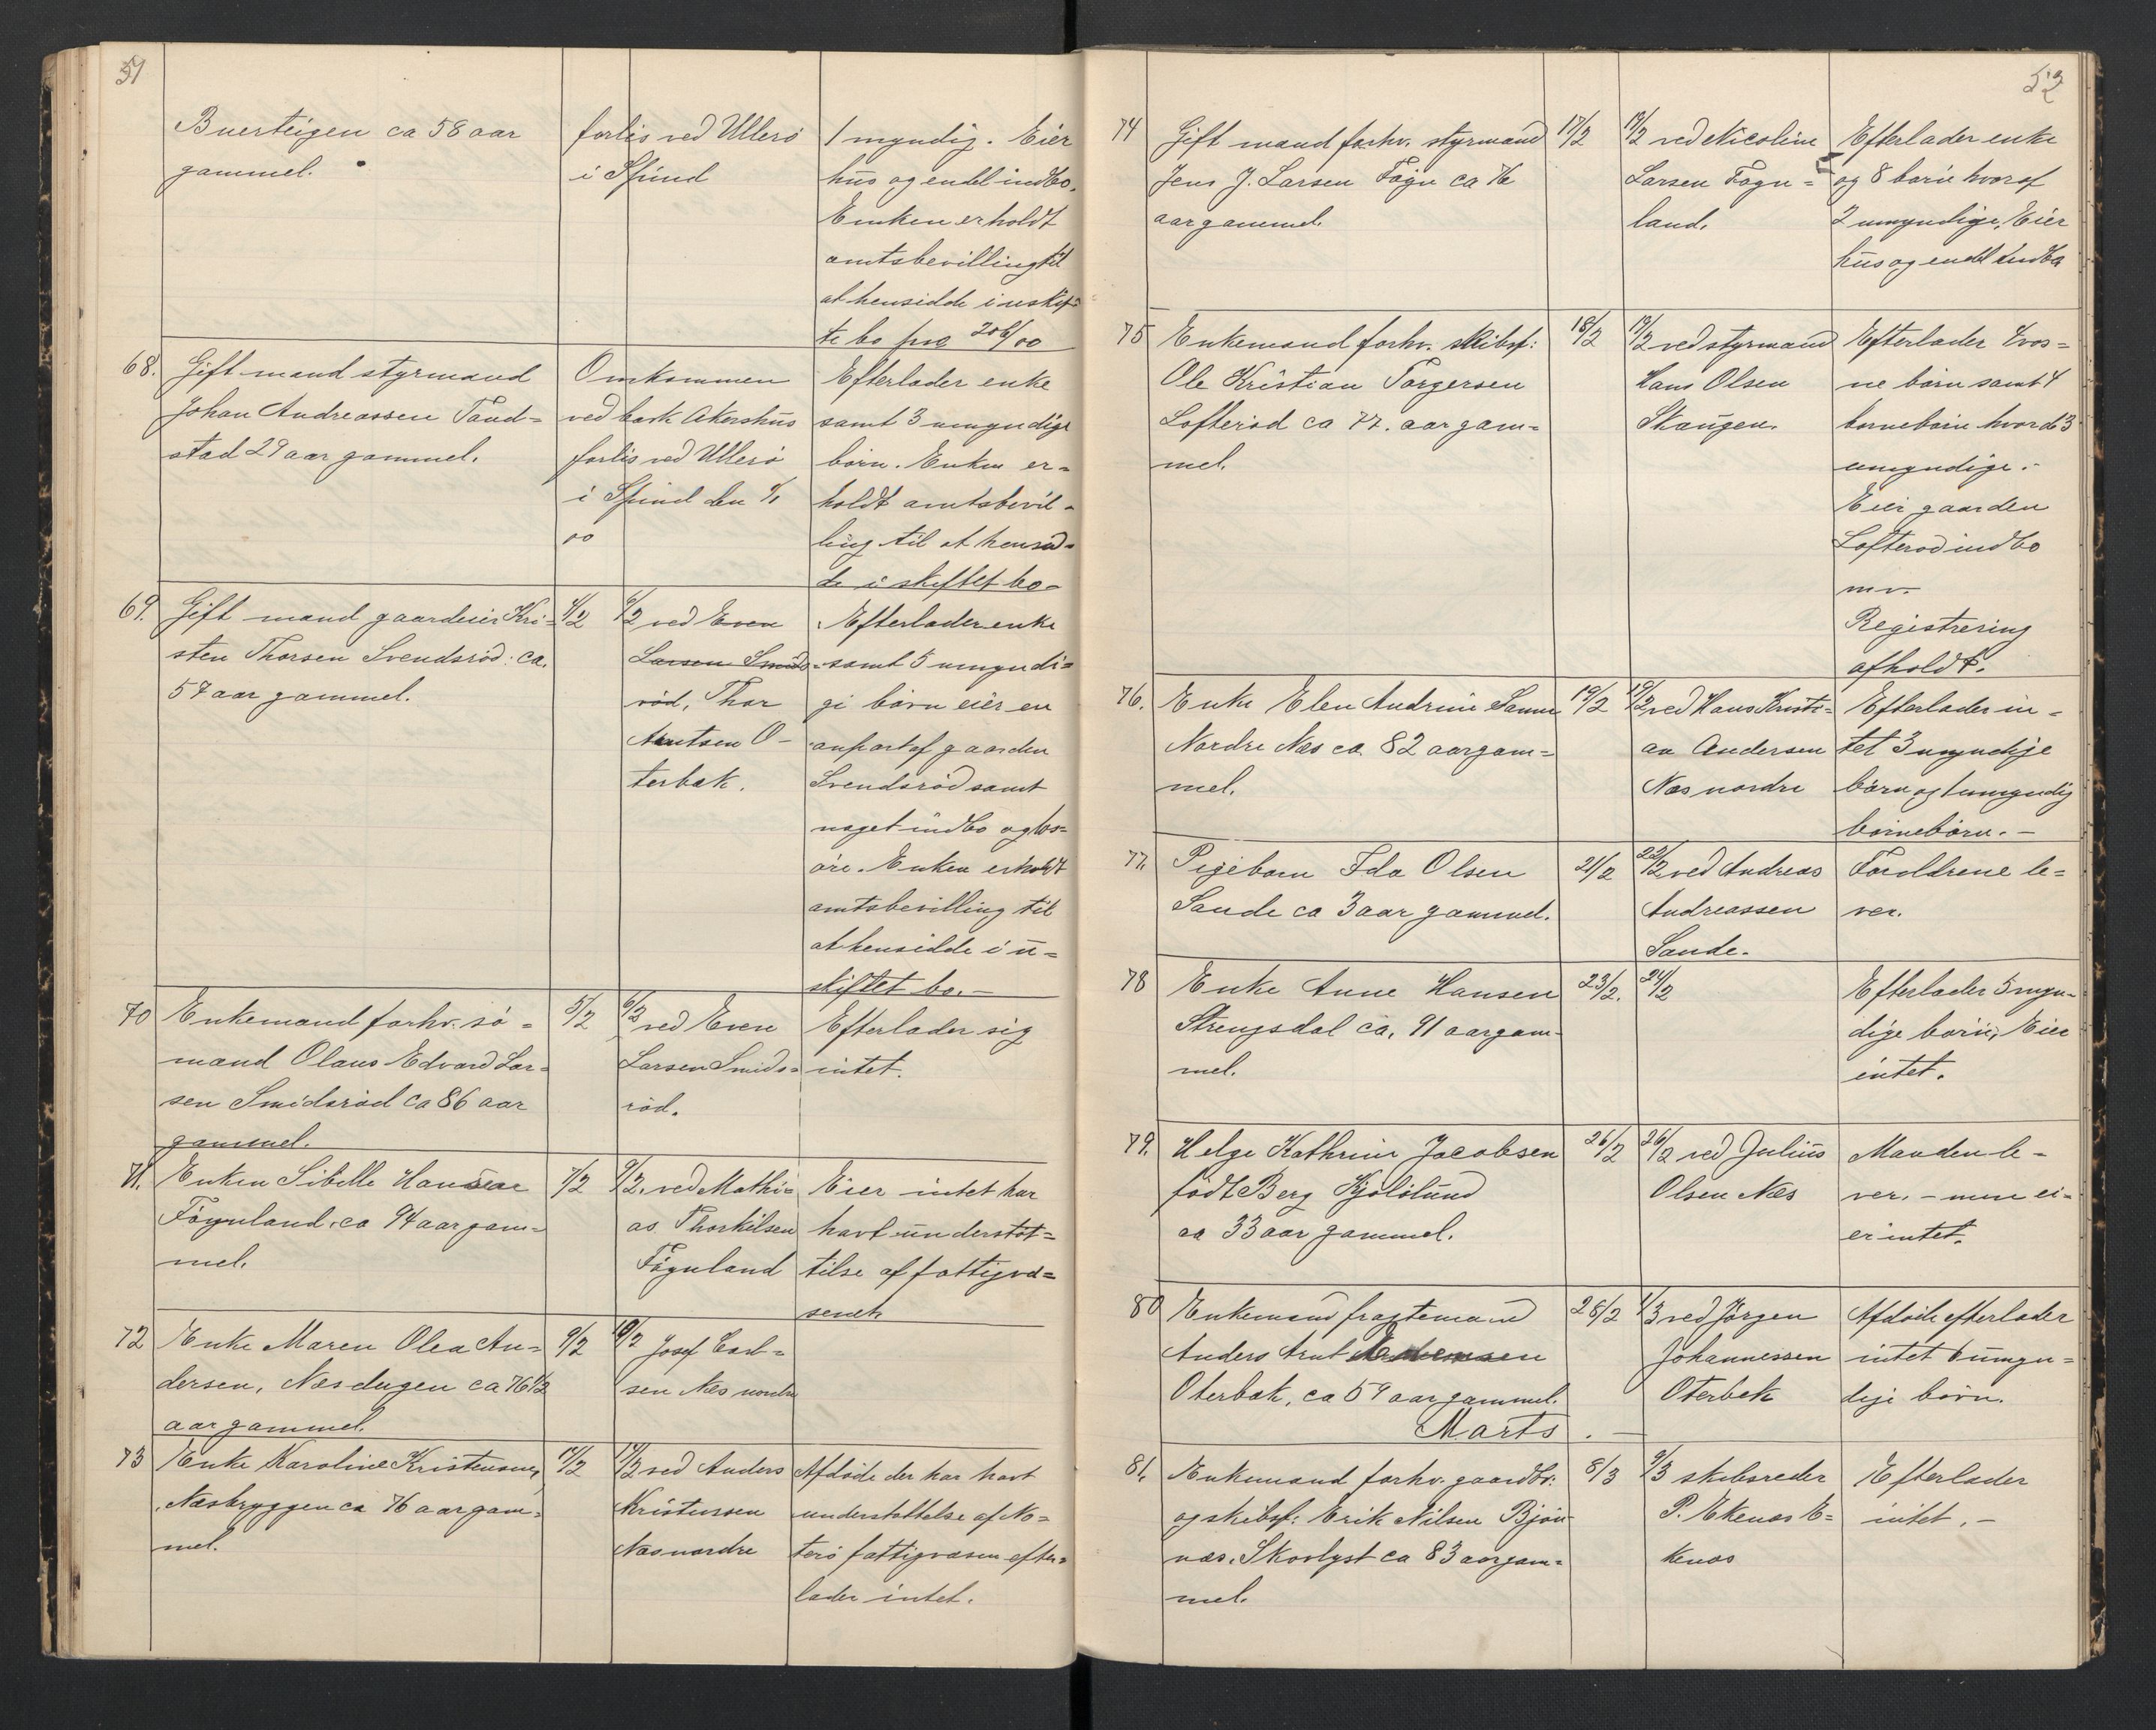 51
Buerteigen ca 58 aar
gammel.
forlis ved Ullerö
i Spind
1 myndig. Eier
hus og endel indbo.
Enken erholdt
amtsbevilling til
at hensidde i uskif=
te bo prg 20 6/00
68. Gift mand styrmand
Johan Andreassen Tand=
stad 29 aar gammel.
Omkommen
ved bark Akershus
forlis ved Ullerö
i Spind den
00
Efterlader enke
samt 3 umyndige
börn. Enken er=
holdt amtsbevil=
ling til at hensid=
de i skiftet bo-
69. Gift mand gaardeier Kri=
sten Thorsen Svendsröd: ca.
57 aar gammel.
4/2
6/2 ved Even
Larsen Smids=
röd, Thor
Arntsen O-
terbæk.
Efterlader enke
samt 5 umyndi=
ge börn eier en
anpart af gaarden
Svendsröd samt
noget indbo og lös=
öre. Enken erholdt
amtsbevilling til
at hensidde i u=
skiftet bo.-
70 Enkemand forhv. sö=
mand Olaus Edvard Lar=
sen Smidsröd ca 86 aar
gammel.
5/2
6/2 ved Even
Larsen Smids=
röd.
Efterlader sig
intet.
71. Enken Sibelle Hansen
Föynland ca 94 aar gam=
mel.
7/2
9/2 ved Mathi=
as Thorkilsen
Föynland
Eier intet har
havt understöt=
telse af fattigvæ=
senet
72 Enke Maren Olea An=
dersen, Næsdugen ca 76 1/2
aar gammel.
9/2
10/2 Josef Carl=
sen Næs nordre
73 Enke Karoline Kristensen,
Næsbryggen ca 76 aar gam=
mel.
17/2
17/2 ved Anders
Kristensen
Næs nordre
Afdöde der har havt
understöttelse af Nö=
terö fattigvæsen efter=
lader intet.
52
74 Gift mand forhv. styrmand
Jens J. Larsen Föyn ca 76
aar gammel.
17/2
19/2 ved Nicoline
Larsen Föyn=
land.
Efterlader enke
og 8 börn hvoraf
2 umyndige, Eier
hus og endel indbo
75 Enkemand forhv. skibsf:
Ole Kristian Torgersen
Lofteröd ca 77. aar gam=
mel.
18/2
19/2 ved styrmand
Hans Olsen
Skaugen.
Efterlader 4 vox=
ne börn samt 4
börnebörn hvoraf 3
umyndige.-
Eier gaarden
Lofteröd indbo
m.v.
Registrering
afholdt.
76. Enke Elen Andrine Sanne
Nordre Næs ca 82 aar gam=
mel.
19/2
19/2 ved Hans Kristi=
an Andersen
Næs nordre
Efterlader in=
tet 3 myndige
börn og 1 umyndig
börnebörn.-
77. Pigebarn Ida Olsen
Sande ca 3 aar gammel.
21/2
22/2 ved Andreas
Andreassen
Sande.
Forældrene le=
ver.
78 Enke Anne Hansen
Strengsdal ca. 91 aar gam=
mel.
23/2.
24/2
Efterlader 5 myn=
dige börn, Eier
intet.
79. Helge Kathrine Jacobsen
födt Berg Kjölölund
ca 33 aar gammel.
26/2
26/2 ved Julius
Olsen Næs
Manden le=
ver. - men ei=
er intet.
80 Enkemand fragtemand
Anders Arnt
Oterbæk, ca 59 aar gammel.
28/2
1/3 ved Jörgen
Johannessen
Oterbæk
Afdöde efterlader
intet 6 umyn=
dige börn.
Marts.
81. Enkemand forhv. gaardbr:
og skibsf: Erik Nilsen Björ=
næs, Skovlyst ca 83 aar gam=
mel.
8/3
9/3 skibsreder
P. Ekenæs E=
kenæs
Efterlader
intet.-